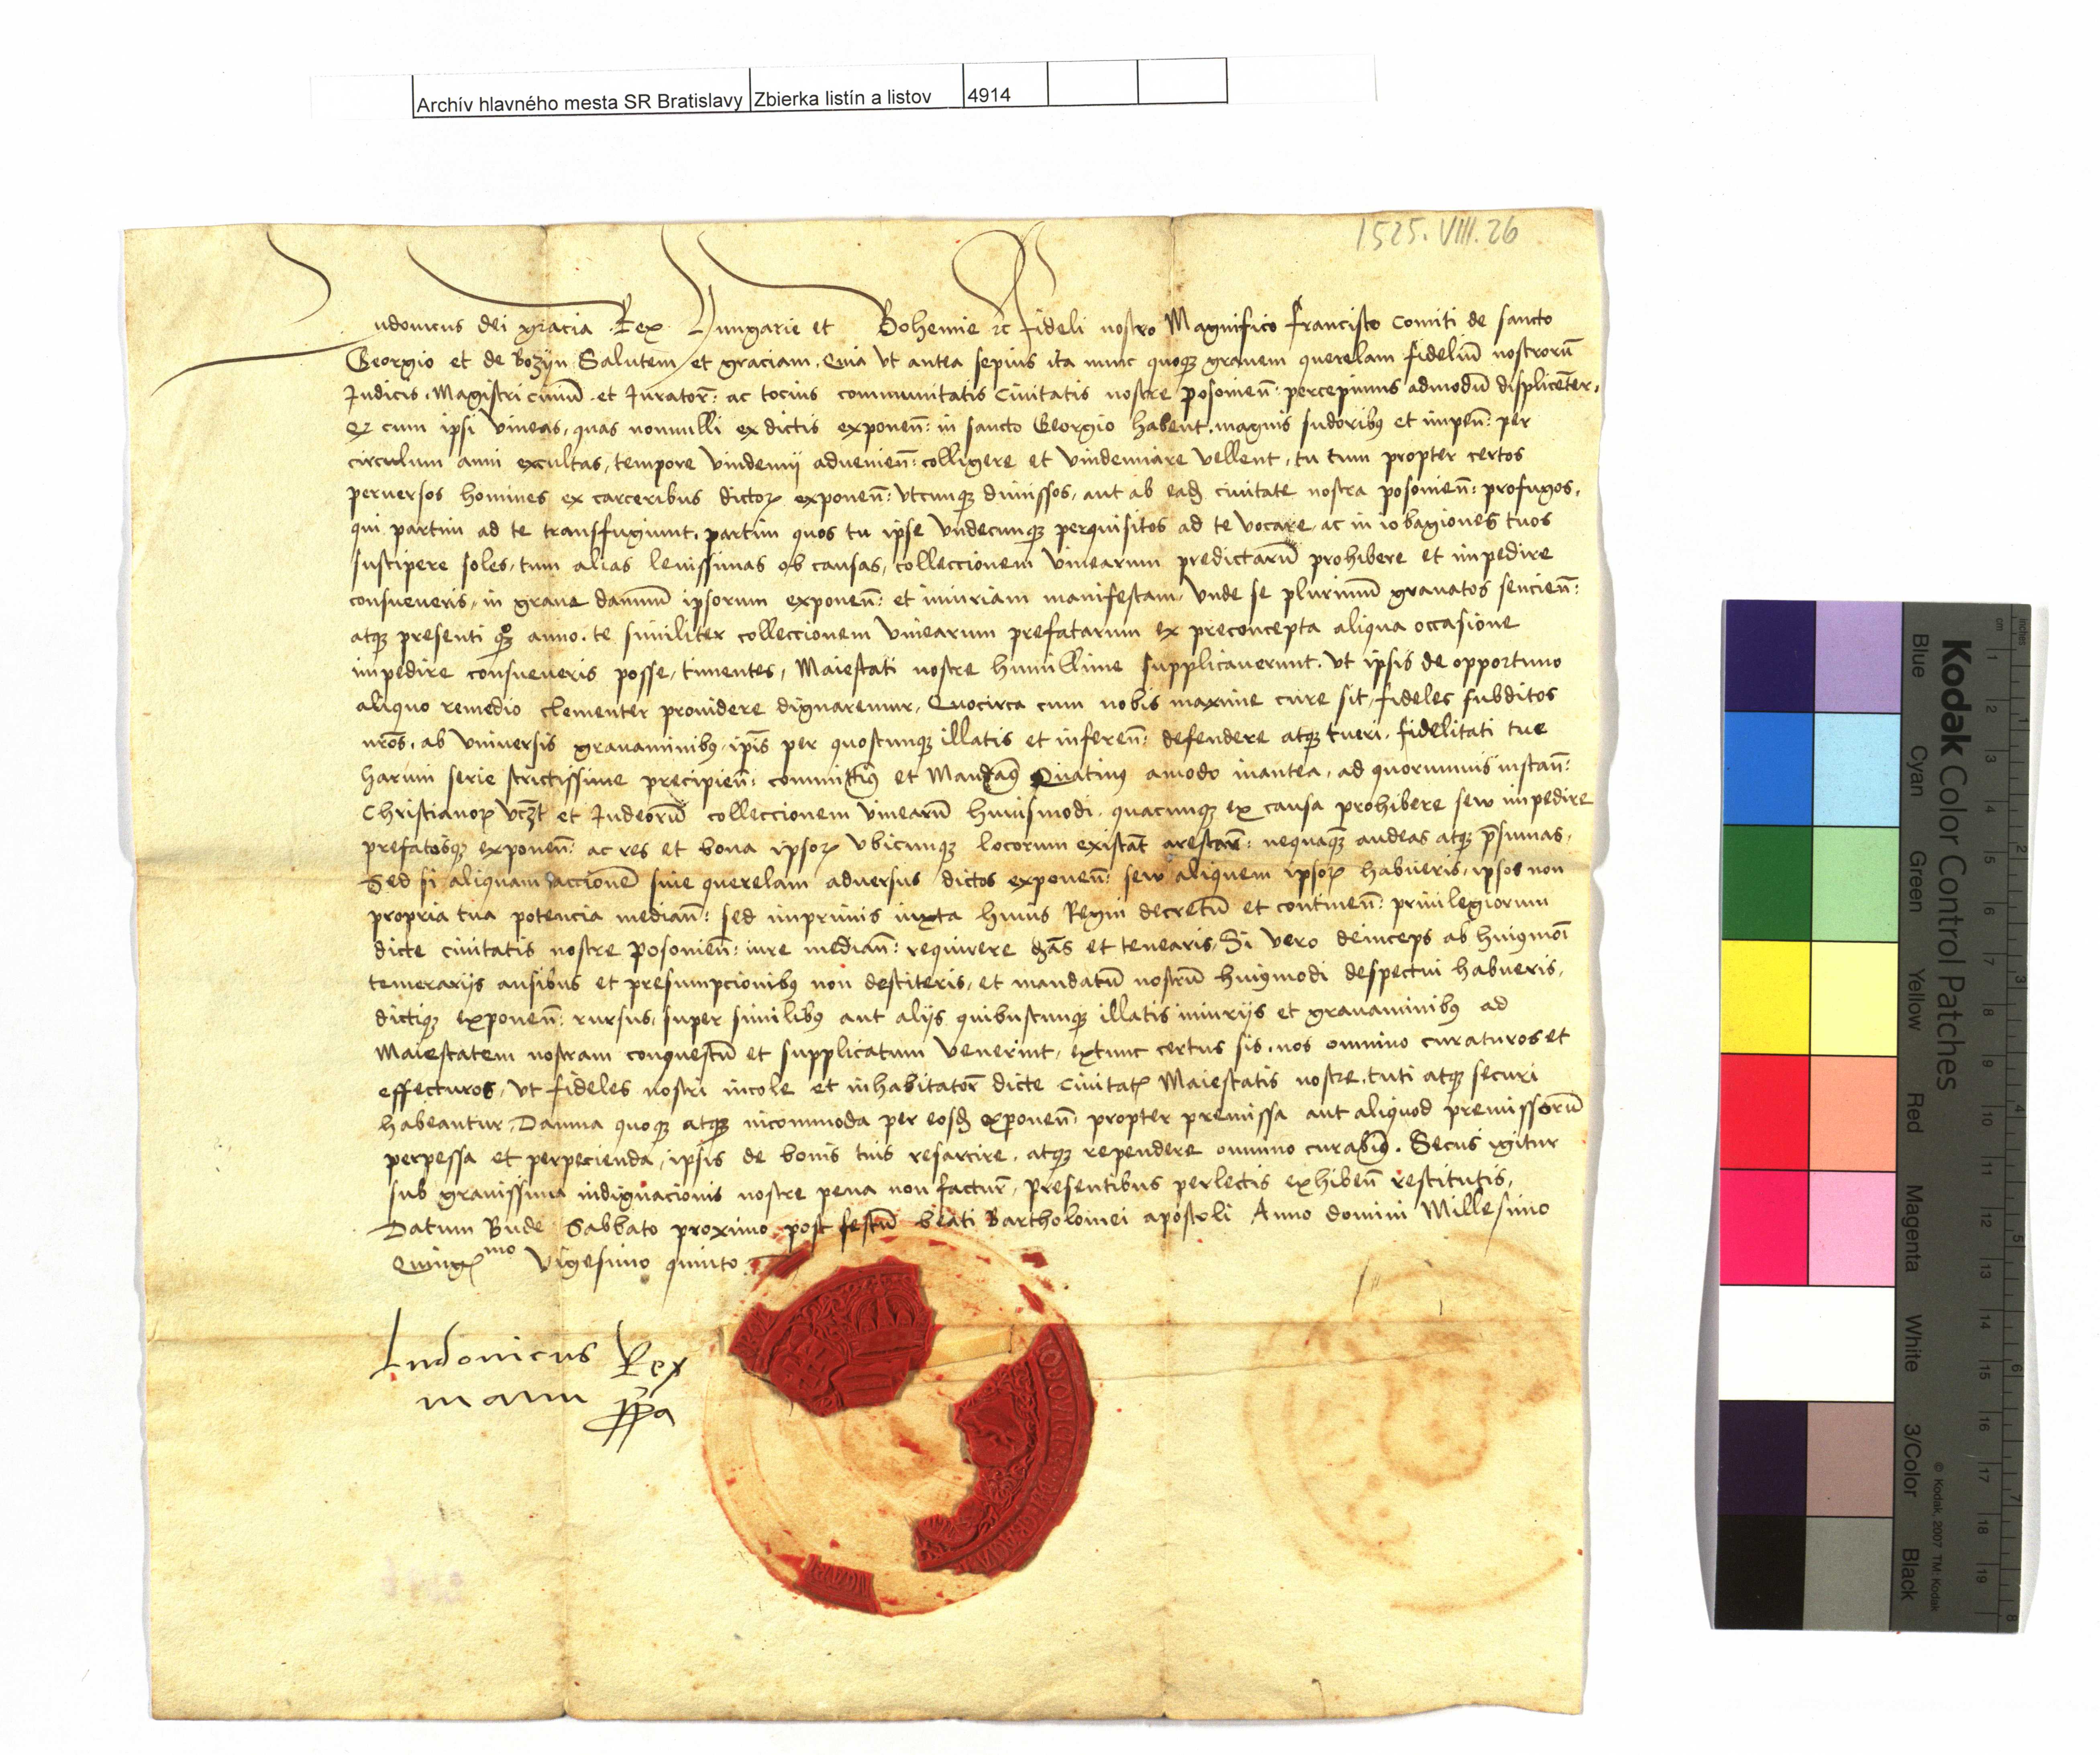 Archív hlavného mesta SR Bratislavy Zbierka listín a listov 4914
1525. VIII. 26
Ludouicus dei gracia Rex Hungarie et Bohemie &c fideli nostro Magnifico Francisco Comiti de sancto
Georgio et de Bozyn Salutem et graciam. Quia vt antea sepius ita nunc quoq; grauem querelam fideliū nostrorū
Judicis, Magistri ciuiū et Jurator: ac tocius communitatis Ciuitatis nostre Posonieñ: percepimus admodū displiceter,
cum ipsi vineas, quas nonnulli ex dictis exponeñ: in sancto Georgio habent, magnis sudoribꝰ et impeñ: per
circulum anni excultas, tempore vindemij aduenieñ: colligere et vindemiare vellent, tu tum propter certos
peruersos homines ex carceribus dictoꝝ exponeñ: vtcunq; dimissos, aut ab eadꝫ ciuitate nostra posonieñ: profugos,
qui partim ad te transfugiunt, partim quos tu ipse vndecunq; perquisitos ad te vocare, ac in iobagiones tuos
suscipere soles, tum alias leuissimas ob causas, colleccionem vinearum predictarū prohibere et impedire
consueueris, in graue damnū ipsorum exponeñ: et iniuriam manifestam, vnde se plurimū grauatos sencieñ:
atq; presenti anno te similiter colleccionem vinearum prefatarum ex preconcepta aliqua occasione
impedire consueueris posse, timentes, Maiestati nostre humillime supplicauerunt, vt ipsis de opportuno
aliquo remedio clementer prouidere dignaremur, Quocirca cum nobis maxime cure sit, fideles subditos
nr̄os, ab vniuersis grauaminibꝰ, ip̄is per quoscunq; illatis et infereñ: defendere atq; tueri, fidelitati tue
harum serie strictissime precipieñ: committimꝰ et Mandamꝰ Quatinꝰ amodo inantea, ad quorumuis instañ:
Christianoꝝ vcꝫt et Judeorū colleccionem vinearū huiusmodi, quacunq; ex causa prohibere sew impedire
prefatosq; exponeñ: ac res et bona ipsoꝝ vbicunq; locorum existāt arestare: nequaq̄ audeas atq; p̄sumas,
Sed si aliquam accionē siue querelam aduersus dictos exponeñ: sew aliquem ipsoꝝ habueris, ipsos non
propria tua potencia mediañ: sed imprimis iuxta huius Regni decretū et contineñ: priuilegiorum
dicte ciuitatis nostre Posonieñ: iure mediañ: requirere et tenearis, Si vero deinceps ab huiꝰmōi
temerarijs ausibus et presumpcionibꝰ non destiteris, et mandatū nostrū huiꝰmodi despectui habueris,
dictiq; exponeñ: rursus, super similibꝰ aut alijs quibuscunq; illatis iniurijs et grauaminibꝰ ad
Maiestatem nostram conquestū et supplicatum venerint, extunc certus sis, nos omnino curaturos et
effecturos, vt fideles nostri incole et inhabitator dicte Ciuitatꝭ Maiestatis nostre, tuti atq; securi
habeantur, Damna quoq; atq; incommoda per eosdꝫ exponeñ: propter premissa aut aliquod premissorū
perpessa et perpecienda, ipsis de bonis tuis resarcire, atq; rependere omnino curabimꝰ. Secus igitur
sub grauissima indignacionis nostre pena non factur, Presentibus perlectis exhibeñ restitutis,
Datum Bude Sabbato proximo post festū beati Bartholomei apostoli Anno domini Millesimo
Quingꝭmo Vigesimo quinto.
Ludouicus Rex
manu ppa
Kodak Color Control Patches
Blue Cyan Green Yellow Red Magenta White 3/Color Black
© Kodak, 2007 TM: Kodak